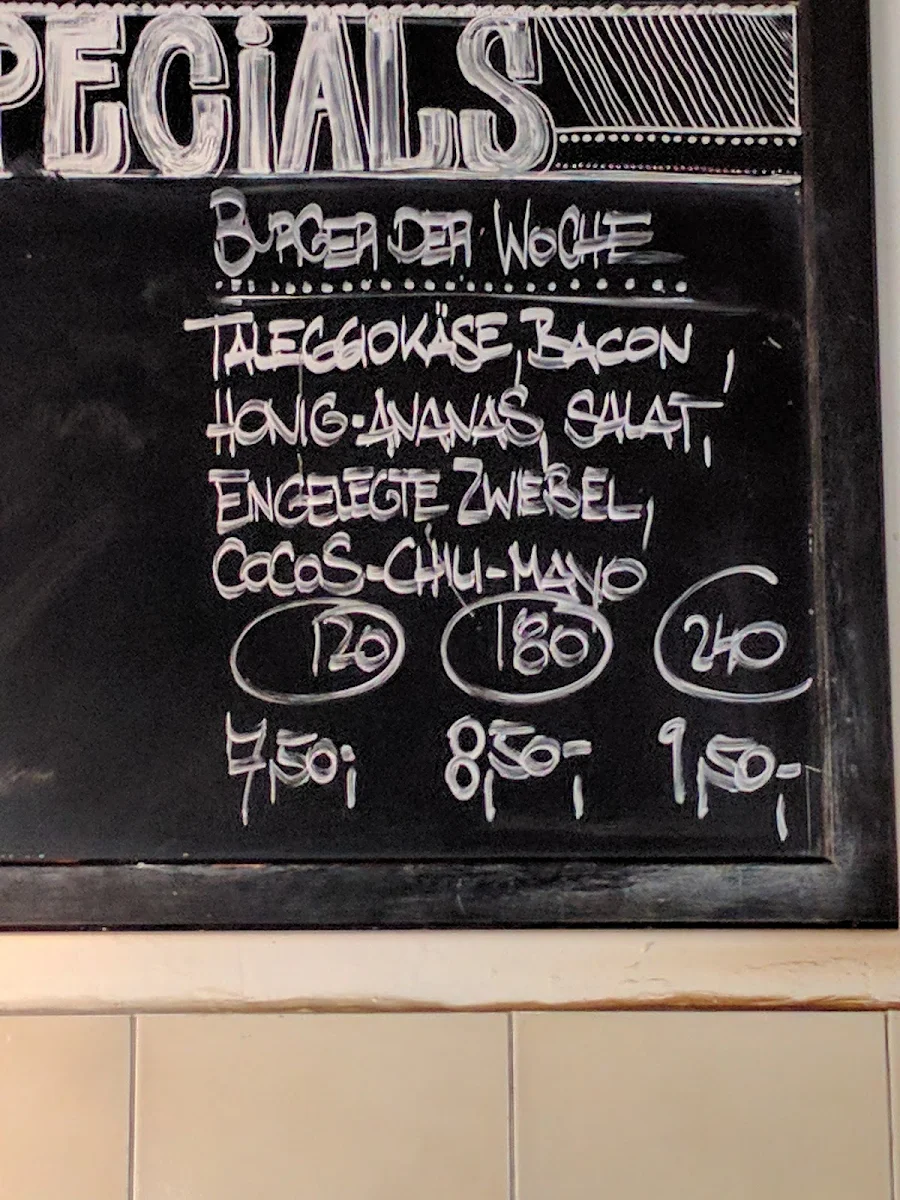 PECiALS
BURGER DER WOCHE
TALEGGIOKÄSE, BACON,
HONIG-ANANAS, SALAT,
EINGELEGTE ZWIEBEL,
COCOS-CHILI-MAYO
120 180 240
7,50,- 8,50,- 9,50,-